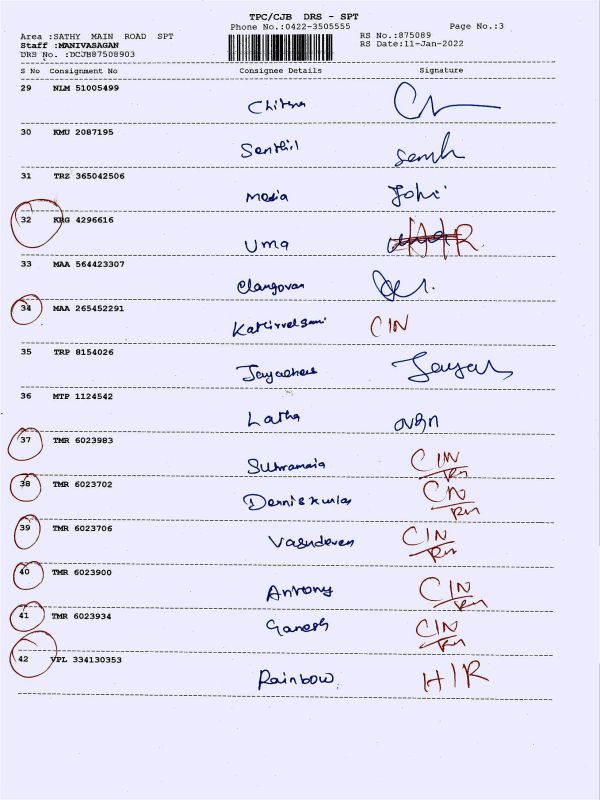 TPC/CJB DRS - SPT
Phone No.:0422-3505555 Page No.:3
Area :SATHY MAIN ROAD SPT RS No.:875089
Staff :MANIVASAGAN RS Date:11-Jan-2022
DRS No. :DCJB87508903
S No Consignment No Consignee Details Signature
29 NLM 51005499
Chitra
30 KMU 2087195
Senthil
31 TRZ 365042506
Media Johi
32 KRG 4296616
Uma H/R
33 MAA 564423307
Elangovan
34 MAA 265452291
Kathirvelsami CIN
35 TRP 8154026
Jayachan Jayah
36 MTP 1124542
Latha
37 TMR 6023983
Subramania CIN/Rn
38 TMR 6023702
Denniskumar CIN/Rn
39 TMR 6023706
Vasudevan CIN/Rn
40 TMR 6023900
Antony CIN/Rn
41 TMR 6023934
Ganesh CIN/Rn
42 VPL 334130353
Rainbow. H/R